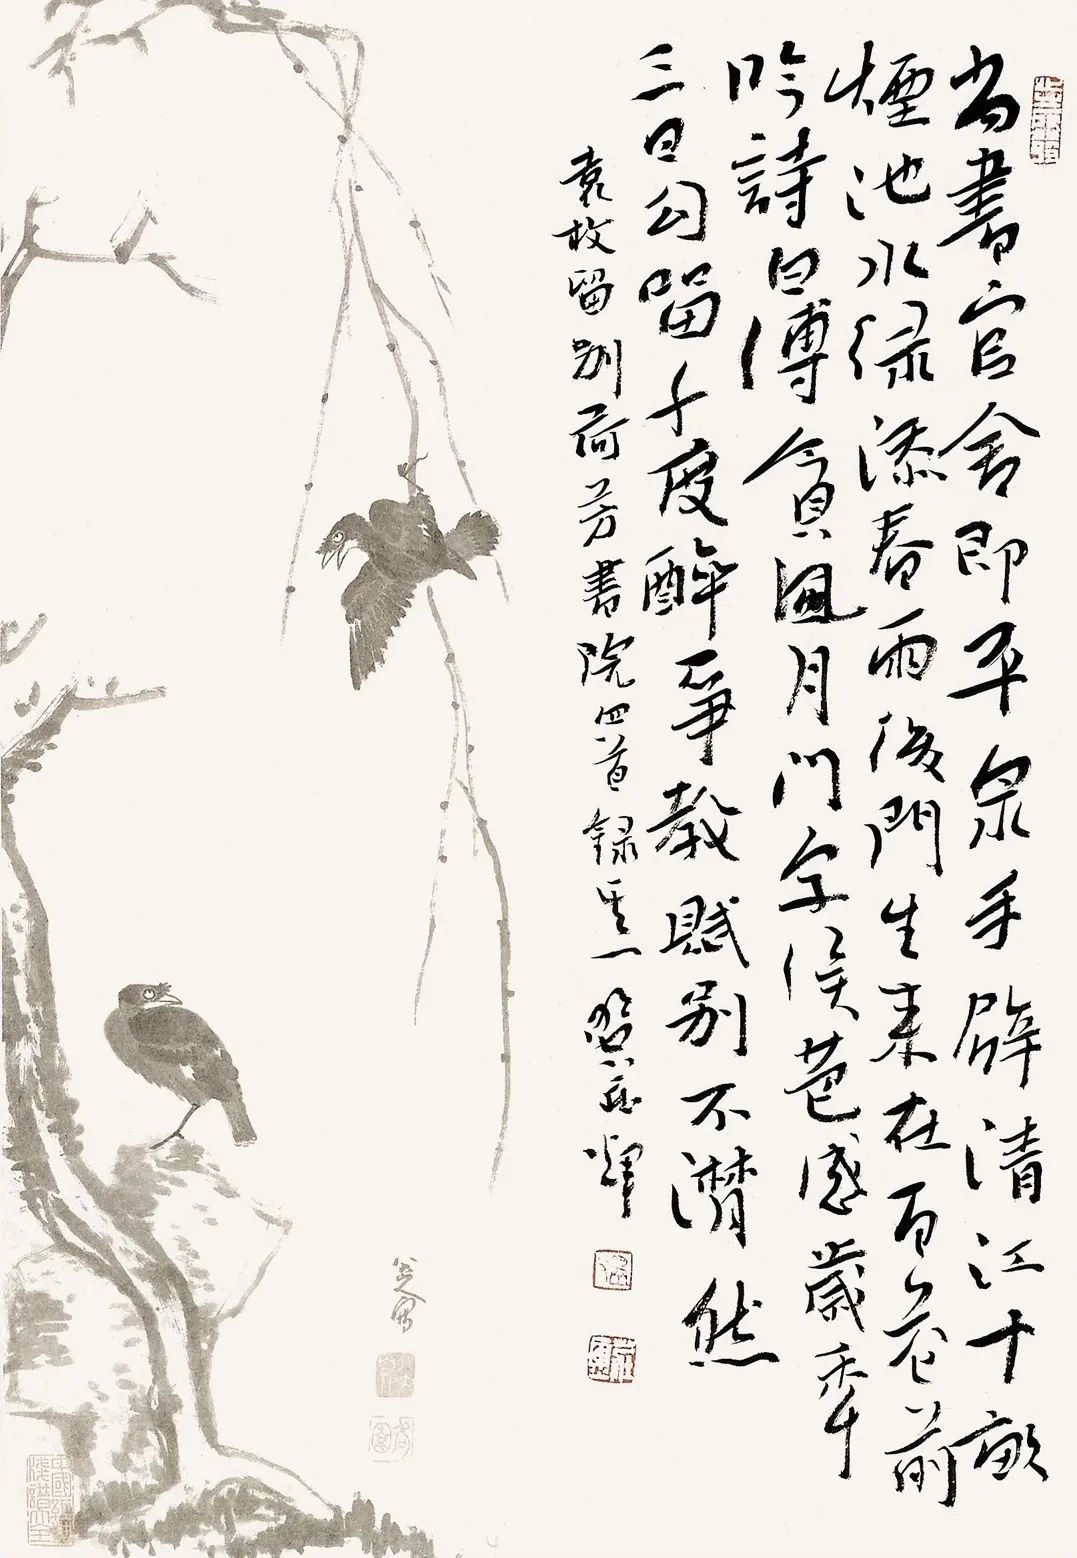 尚書官舍即平泉手辟清江十畝
煙池水緑添春雨後門生来在百花前
吟詩白傅貪風月問字侯芭感歲年
三日勾留千度醉爭教賦别不潸然
袁枚留别荷芳書院四首録其一 庄輝
八大山人